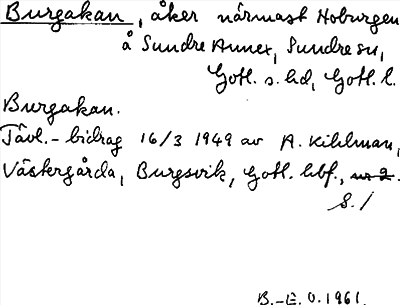 Burgakan, åker närmast Hoburgen
å Sundre Annex, Sundre sn,
Gotl. s. hd, Gotl. l.
Burgakan.
Tävl.-bidrag 16/3 1949 av A. Kihlman,
Västergårda, Burgsvik, Gotl. hbf.,
S. 1
B.-E. O. 1961.